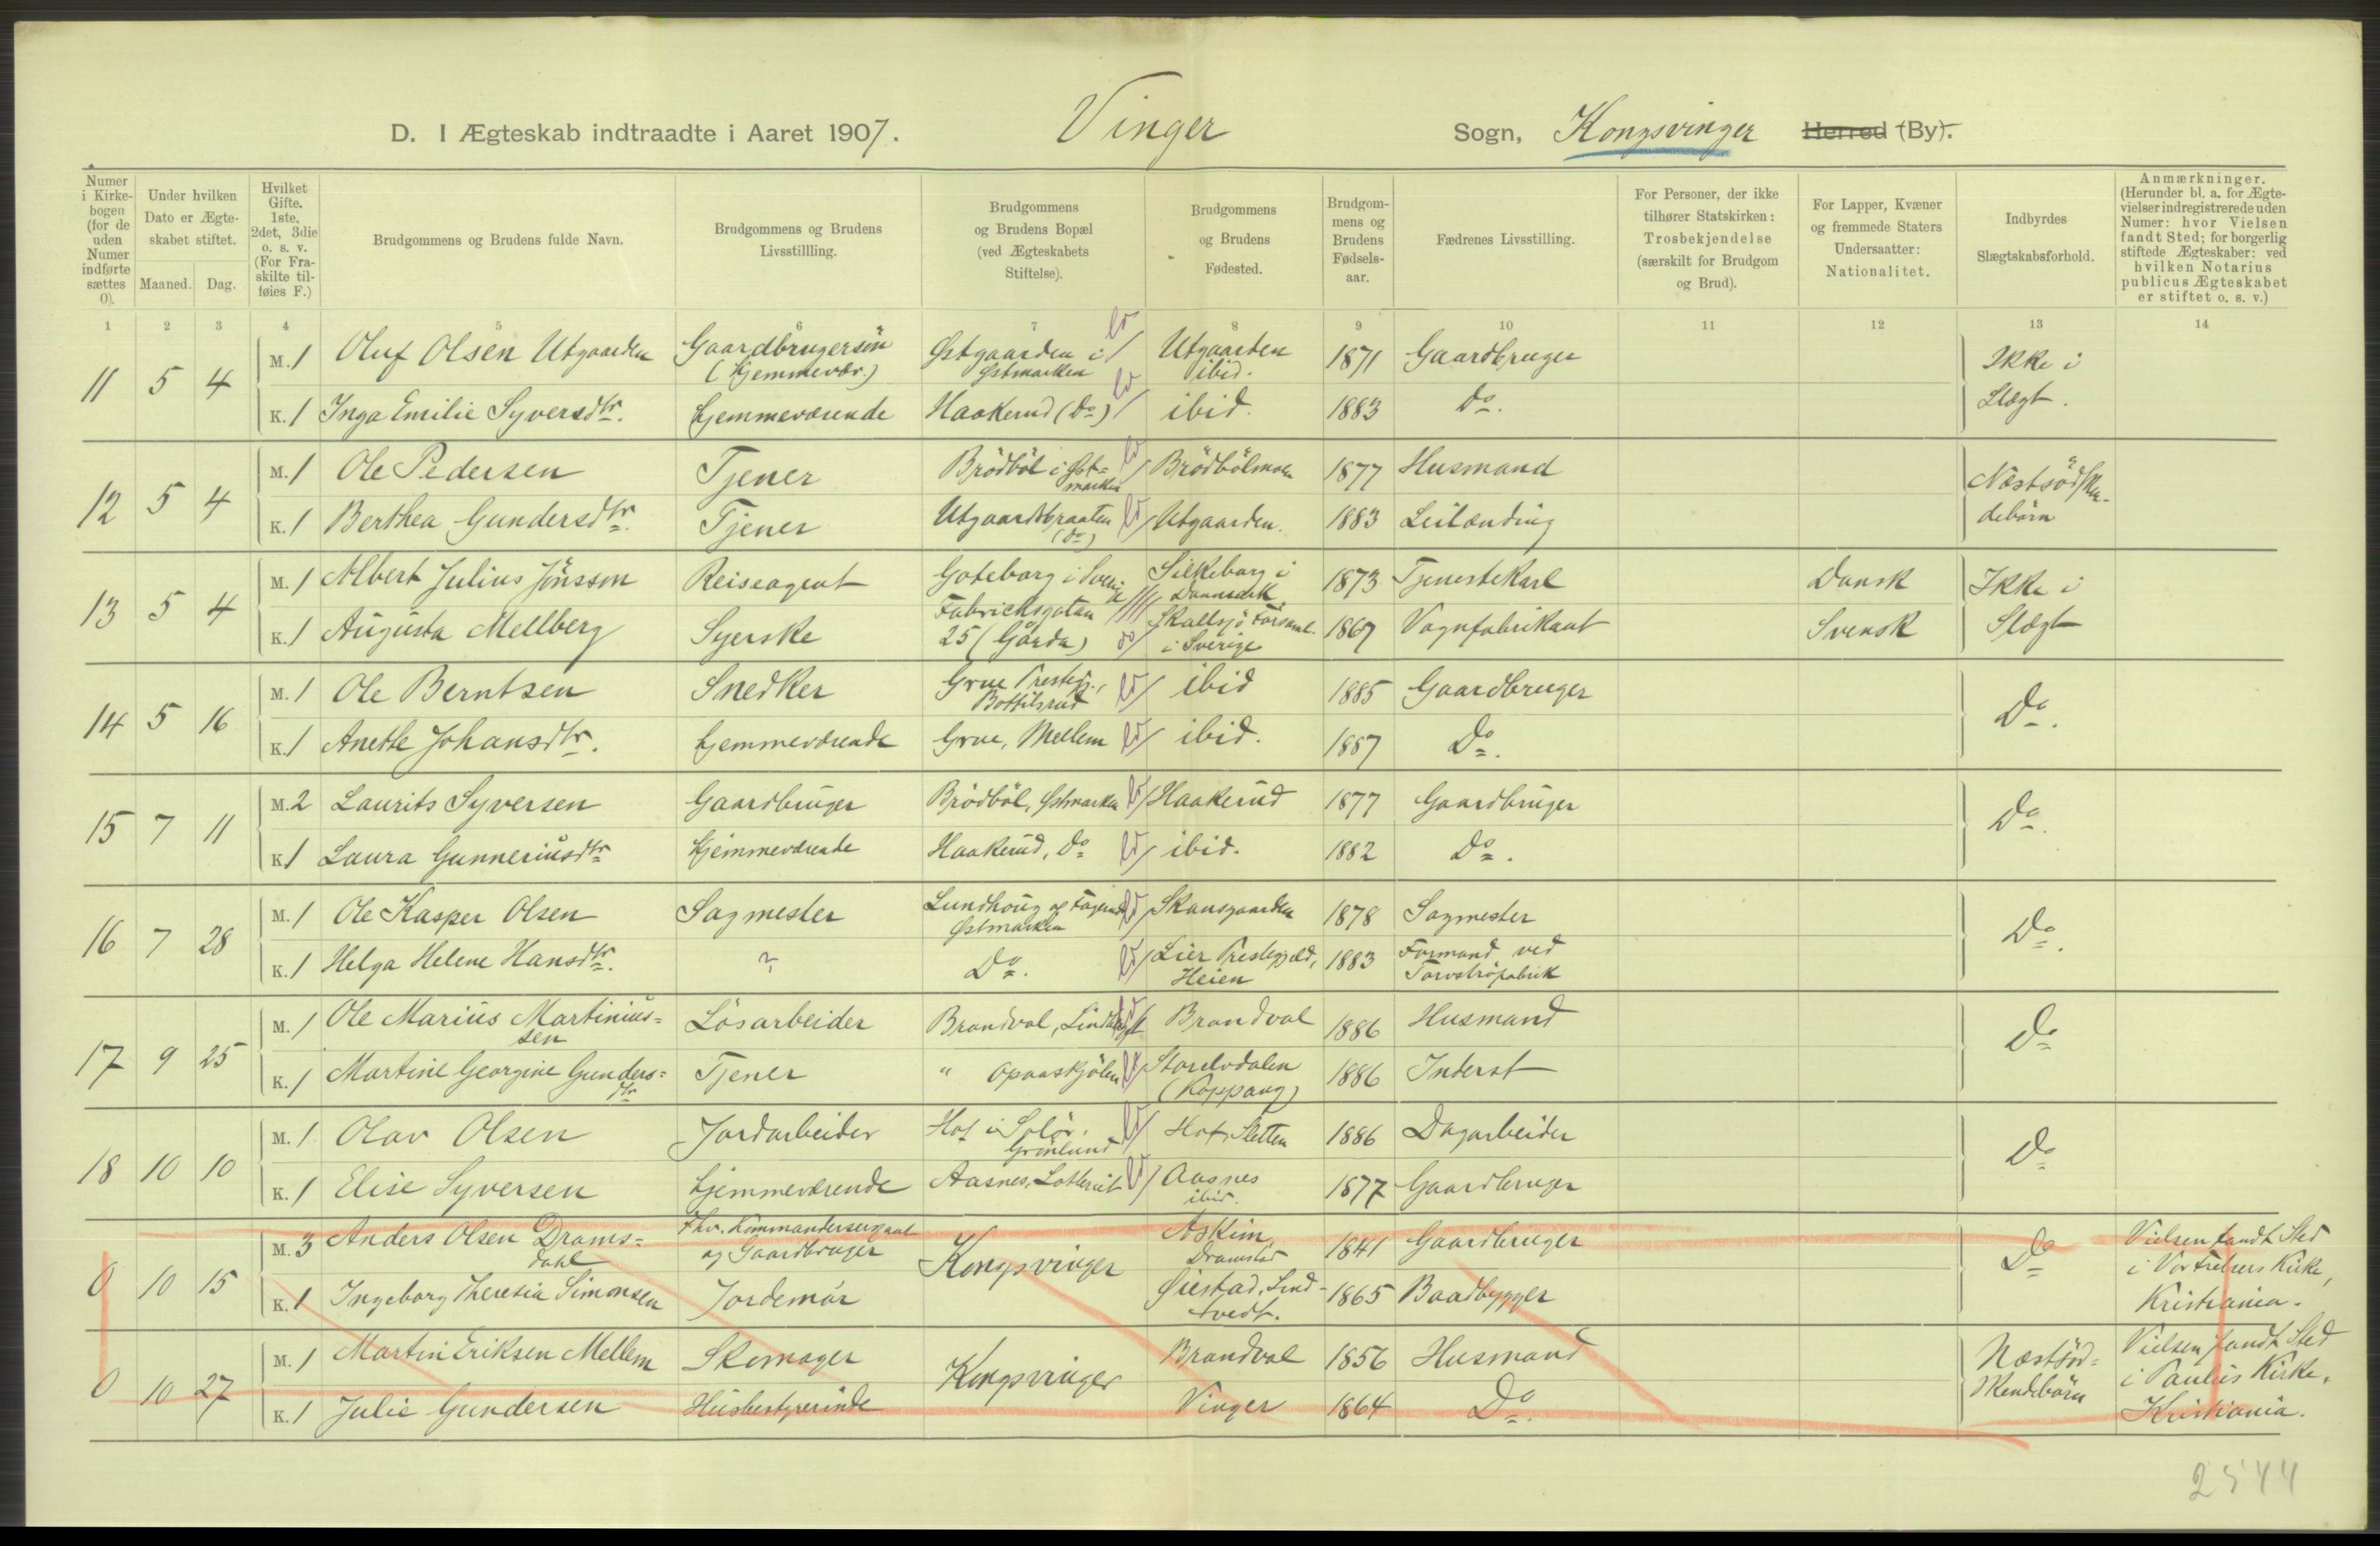 D. I Ægteskab indtraadte i Aaret 1907. Vinger Sogn, Kongsvinger Herred (By).
Numer i Kirkebogen (for de uden Numer indførte sættes 0).
Under hvilken Dato er Ægteskabet stiftet.
Maaned. Dag.
Hvilket Gifte. 1ste, 2det, 3die o. s. v. (For Fraskilte tilføies F.)
Brudgommens og Brudens fulde Navn.
Brudgommens og Brudens Livsstillling.
Brudgommens og Brudens Bopæl (ved Ægteskabets Stiftelse).
Brudgommens og Brudens Fødested.
Brudgommens og Brudens Fødselsaar.
Fædrenes Livsstilling.
For Personer, der ikke tilhører Statskirken: Trosbekjendelse (særskilt for Brudgom og Brud).
For Lapper, Kvæner og fremmede Staters Undersaatter: Nationalitet.
Indbyrdes Slægtskabsforhold.
Anmærkninger. (Herunder bl. a. for Ægtevielser indregistrerede uden Numer: hvor Vielsen fandt Sted; for borgerlig stiftede Ægteskaber: ved hvilken Notarius publicus Ægteskabet er stiftet o. s. v.)
1 2 3 4 5 6 7 8 9 10 11 12 13 14
11 5 4 M. 1 Oluf Olsen Utgaarden Gaardbrugersøn (hjemmevær.) Østgaarden i Østmarken Utgaarden ibid. 1871 Gaardbruger Ikke i
K. 1 Inga Emilie Syversdtr. hjemmeværende Haakerud (Do) ibid. 1883 Do. Slægt.
12 5 4 M. 1 Ole Pedersen Tjener Brödböl i Østmarken Brödbölmoen 1877 Husmand
K. 1 Berthea Gundersdtr. Tjener Utgaardsbraaten (Do) Utgaarden. 1883 Leilænding debörn
13 5 4 M. 1 Albert Julius Jönsson Reiseagent Goteborg i Sverige Silkeborg i Danmark 1873 Tjenestekarl Dansk Ikke i
K. 1 Augusta Mellberg Syerske Fabricksgatan 25 (Gårda) Skallsjö Församl. i Sverige 1867 Vognfabrikant Svensk Slægt
14 5 16 M. 1 Ole Berntsen Snedker Grue Prestegj., ibid 1885 Gaardbruger Do.
K. 1 Anette Johansdtr. hjemmeværende Grue, Mellem ibid. 1887 Do.
15 7 11 M. 2 Laurits Syversen Gaardbruger Brödböl, Østmarken Haakerud 1877 Gaardbruger Do.
K. 1 Laura Gunneriusdtr hjemmeværende Haakerud, Do ibid. 1882 Do.
16 7 28 M. 1 Ole Kasper Olsen Sagmester Lundhoug Østmarken Skansgaarden 1878 Sagmester Do.
K. 1 Helga Helene Hansdtr. ? Do. Lier Prestegjeld, Heien 1883 Formand ved Torvströfabrik
17 9 25 M. 1 Ole Marius Martiniussen Lösarbeider Brandval, Brandval 1886 Husmand Do
K. 1 Martine Georgine Gundersdtr Tjener " Opaaskjölen Storelvdalen (Koppang) 1886 Inderst
18 10 10 M. 1 Olav Olsen Jordarbeider Hof i Solör, Grönlund Hof, Sletten 1886 Dagarbeider Do
K. 1 Elise Syversen hjemmeværende Aasnes, Aasnes ibid. 1877 Gaardbruger
0 10 15 M. 3 Anders Olsen Dramsdahl Fhv. Kommandersergeant og Gaardbruger Kongsvinger Askim, Dramstad 1841 Gaardbruger Do Vielsen fandt Sted
K. 1 Ingeborg Theresia Simonsen Jordemor Øiestad, Lindtvedt. 1865 Baadbygger i Vor Frelsers Kirke, Kristiania.
0 10 27 M. 1 Martin Eriksen Mellem Skomager Kongsvinger Brandval 1856 Husmand Næstsødskendebörn Vielsen fandt Sted
K. 1 Julie Gundersen Husbestyrerinde Vinger 1864 Do. i Paulus Kirke, Kristiania.
2544